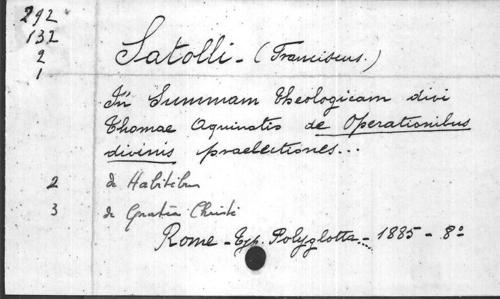 292
132
2
1
Satolli - (Franciscus.)
In Summam theologicam divi
Thomae Aquinatis de Operationibus
divinis praelectiones...
2 de Habitibus
3 de Gratia Christi
Rome - Typ. Polyglotta - 1885 - 8º